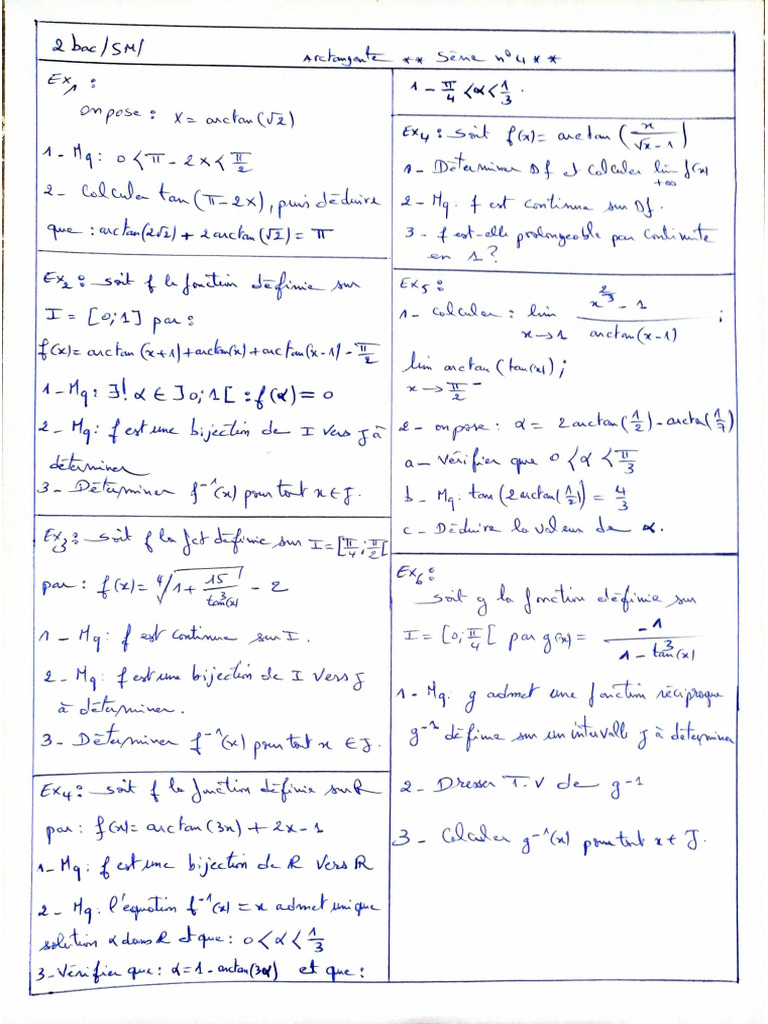 2 bac/SM/
Arctangente ** Série n°4 **
Ex1 :
on pose : x = arctan(√2)
1 - Mq : 0 < π - 2x < π/2
2 - Calculer tan(π - 2x), puis déduire
que : arctan(2√2) + 2arctan(√2) = π
Ex2 : soit f la fonction définie sur
I = [0;1] par :
f(x) = arctan(x+1) + arctan(x) + arctan(x-1) - π/2
1 - Mq : ∃! α ∈ ]0;1[ : f(α) = 0
2 - Mq : f est une bijection de I vers J à
déterminer
3 - Déterminer f⁻¹(x) pour tout x ∈ J.
Ex3 : soit f la fct définie sur I = [π/4 ; π/2[
par : f(x) = ⁴√(1 + 15/tan³(x)) - 2
1 - Mq : f est continue sur I.
2 - Mq : f est une bijection de I vers J
à déterminer.
3 - Déterminer f⁻¹(x) pour tout x ∈ J.
Ex4 : soit f la fonction définie sur R
par : f(x) = arctan(3x) + 2x - 1
1 - Mq : f est une bijection de R vers R
2 - Mq : l'équation f⁻¹(x) = x admet unique
solution α dans R et que : 0 < α < 1/3
3 - Vérifier que : α = 1 - arctan(3α) et que :
1 - π/4 < α < 1/3.
Ex4 : soit f(x) = arctan(x/(√x - 1))
1 - Déterminer Df et calculer lim f(x)
+∞
2 - Mq : f est continue sur Df.
3 - f est-elle prolongeable par continuité
en 1 ?
Ex5 :
1 - calculer : lim x→1 (x^(2/3) - 1)/arctan(x-1) ;
lim arctan(tan(x)) ;
x → π/2⁻
2 - on pose : α = 2arctan(1/2) - arctan(1/7)
a - Vérifier que 0 < α < π/3
b - Mq : tan(2arctan(1/2)) = 4/3
c - Déduire la valeur de α.
Ex6 :
soit g la fonction définie sur
I = [0; π/4[ par g(x) = -1/(1 - tan³(x))
1 - Mq : g admet une fonction réciproque
g⁻¹ définie sur un intervalle J à déterminer
2 - Dresser T.V de g⁻¹
3 - Calculer g⁻¹(x) pour tout x ∈ J.